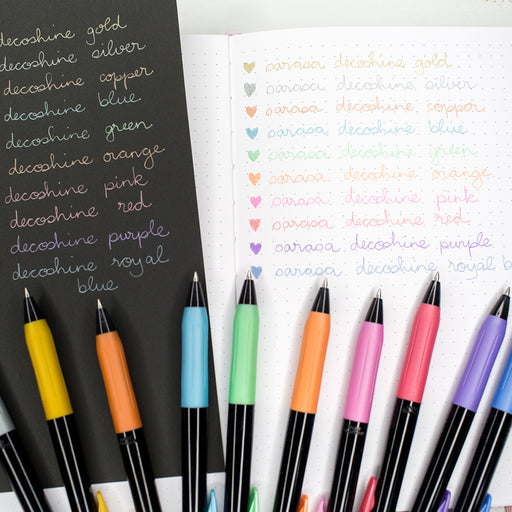 decoshine gold
decoshine silver
decoshine copper
decoshine blue
decoshine green
decoshine orange
decoshine pink
decoshine red
decoshine purple
decoshine royal
blue
sarasa decoshine gold
sarasa decoshine silver
sarasa decoshine copper
sarasa decoshine blue
sarasa decoshine green
sarasa decoshine orange
sarasa decoshine pink
sarasa decoshine red
sarasa decoshine purple
sarasa decoshine royal b